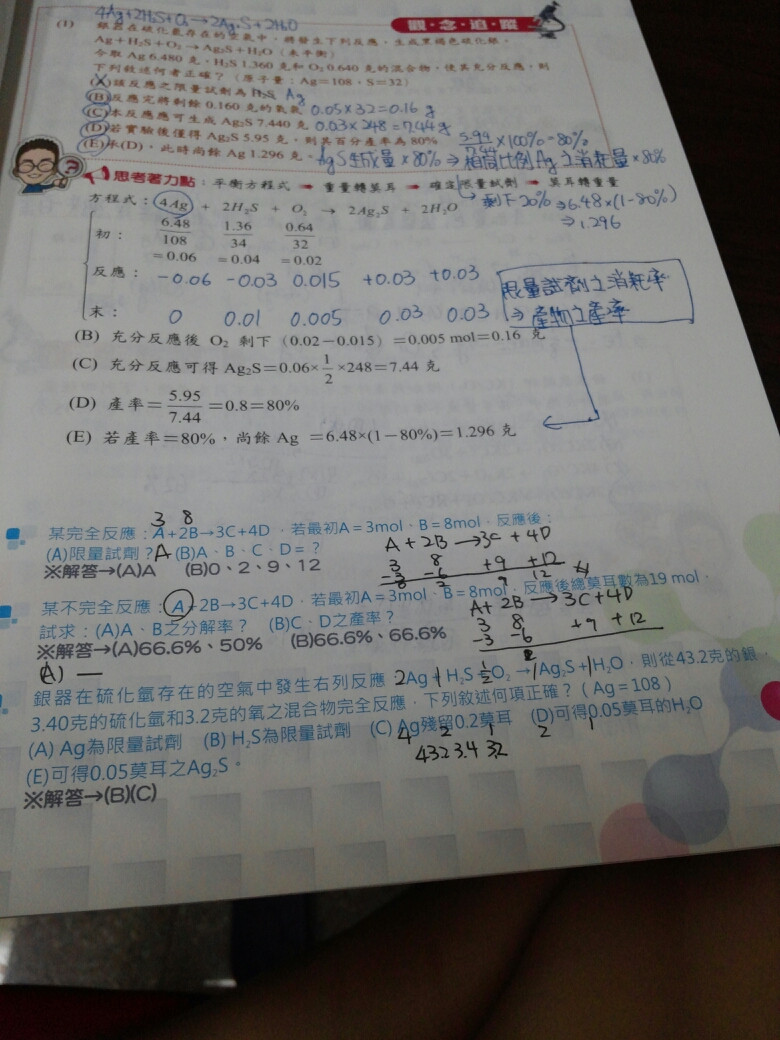 4Ag+2H₂S+O₂→2Ag₂S+2H₂O
觀・念・追・蹤
(1) 銀器在硫化氫存在的空氣中，將發生下列反應，生成黑褐色硫化銀，
Ag + H₂S + O₂ → Ag₂S + H₂O（未平衡）
今取 Ag 6.480 克、H₂S 1.360 克和 O₂ 0.640 克的混合物，使其充分反應，則
下列敘述何者正確？（原子量：Ag=108，S=32）
(A)該反應之限量試劑為H₂S Ag
(B)反應完將剩餘 0.160 克的氧氣 0.05×32=0.16 g
(C)本反應應可生成 Ag₂S 7.440 克 0.03×248=7.44g
(D)若實驗後僅得 Ag₂S 5.95 克，則其百分產率為 80% 5.94/7.44×100%=80%
(E)承(D)，此時尚餘 Ag 1.296 克。 AgS生成量×80%⇒相同比例Ag之消耗量×80%
思考著力點：平衡方程式 ➡ 重量轉莫耳 ➡ 確定限量試劑 ➡ 莫耳轉重量
剩下20% ⇒6.48×(1-80%)
⇒1.296
方程式：4Ag + 2H₂S + O₂ → 2Ag₂S + 2H₂O
初： 6.48/108 1.36/34 0.64/32
=0.06 =0.04 =0.02
反應： -0.06 -0.03 0.015 +0.03 +0.03
限量試劑之消耗率
⇒產物之產率
末： 0 0.01 0.005 0.03 0.03
(B) 充分反應後 O₂ 剩下（0.02−0.015）=0.005 mol=0.16 克
(C) 充分反應可得 Ag₂S=0.06×1/2×248=7.44 克
(D) 產率=5.95/7.44=0.8=80%
(E) 若產率=80%，尚餘 Ag =6.48×(1−80%)=1.296 克
3 8
某完全反應：A+2B→3C+4D，若最初A=3mol、B=8mol，反應後：
(A)限量試劑？A (B)A、B、C、D=？
※解答→(A)A (B)0、2、9、12
A+2B→3C+4D
3 8
-3 -6 +9 +12
2 9 12
某不完全反應：A+2B→3C+4D，若最初A=3mol、B=8mol，反應後總莫耳數為19 mol，
試求：(A)A、B之分解率？ (B)C、D之產率？
※解答→(A)66.6%、50% (B)66.6%、66.6%
A+2B→3C+4D
3 8
-3 -6 +9 +12
2
(A) —
銀器在硫化氫存在的空氣中發生右列反應 2Ag+1H₂S ½O₂→1Ag₂S+1H₂O，則從43.2克的銀、
3.40克的硫化氫和3.2克的氧之混合物完全反應，下列敘述何項正確？（Ag=108）
(A) Ag為限量試劑 (B) H₂S為限量試劑 (C) Ag殘留0.2莫耳 (D)可得0.05莫耳的H₂O
4 2 1 2 1
43.2 3.4 32
(E)可得0.05莫耳之Ag₂S。
※解答→(B)(C)